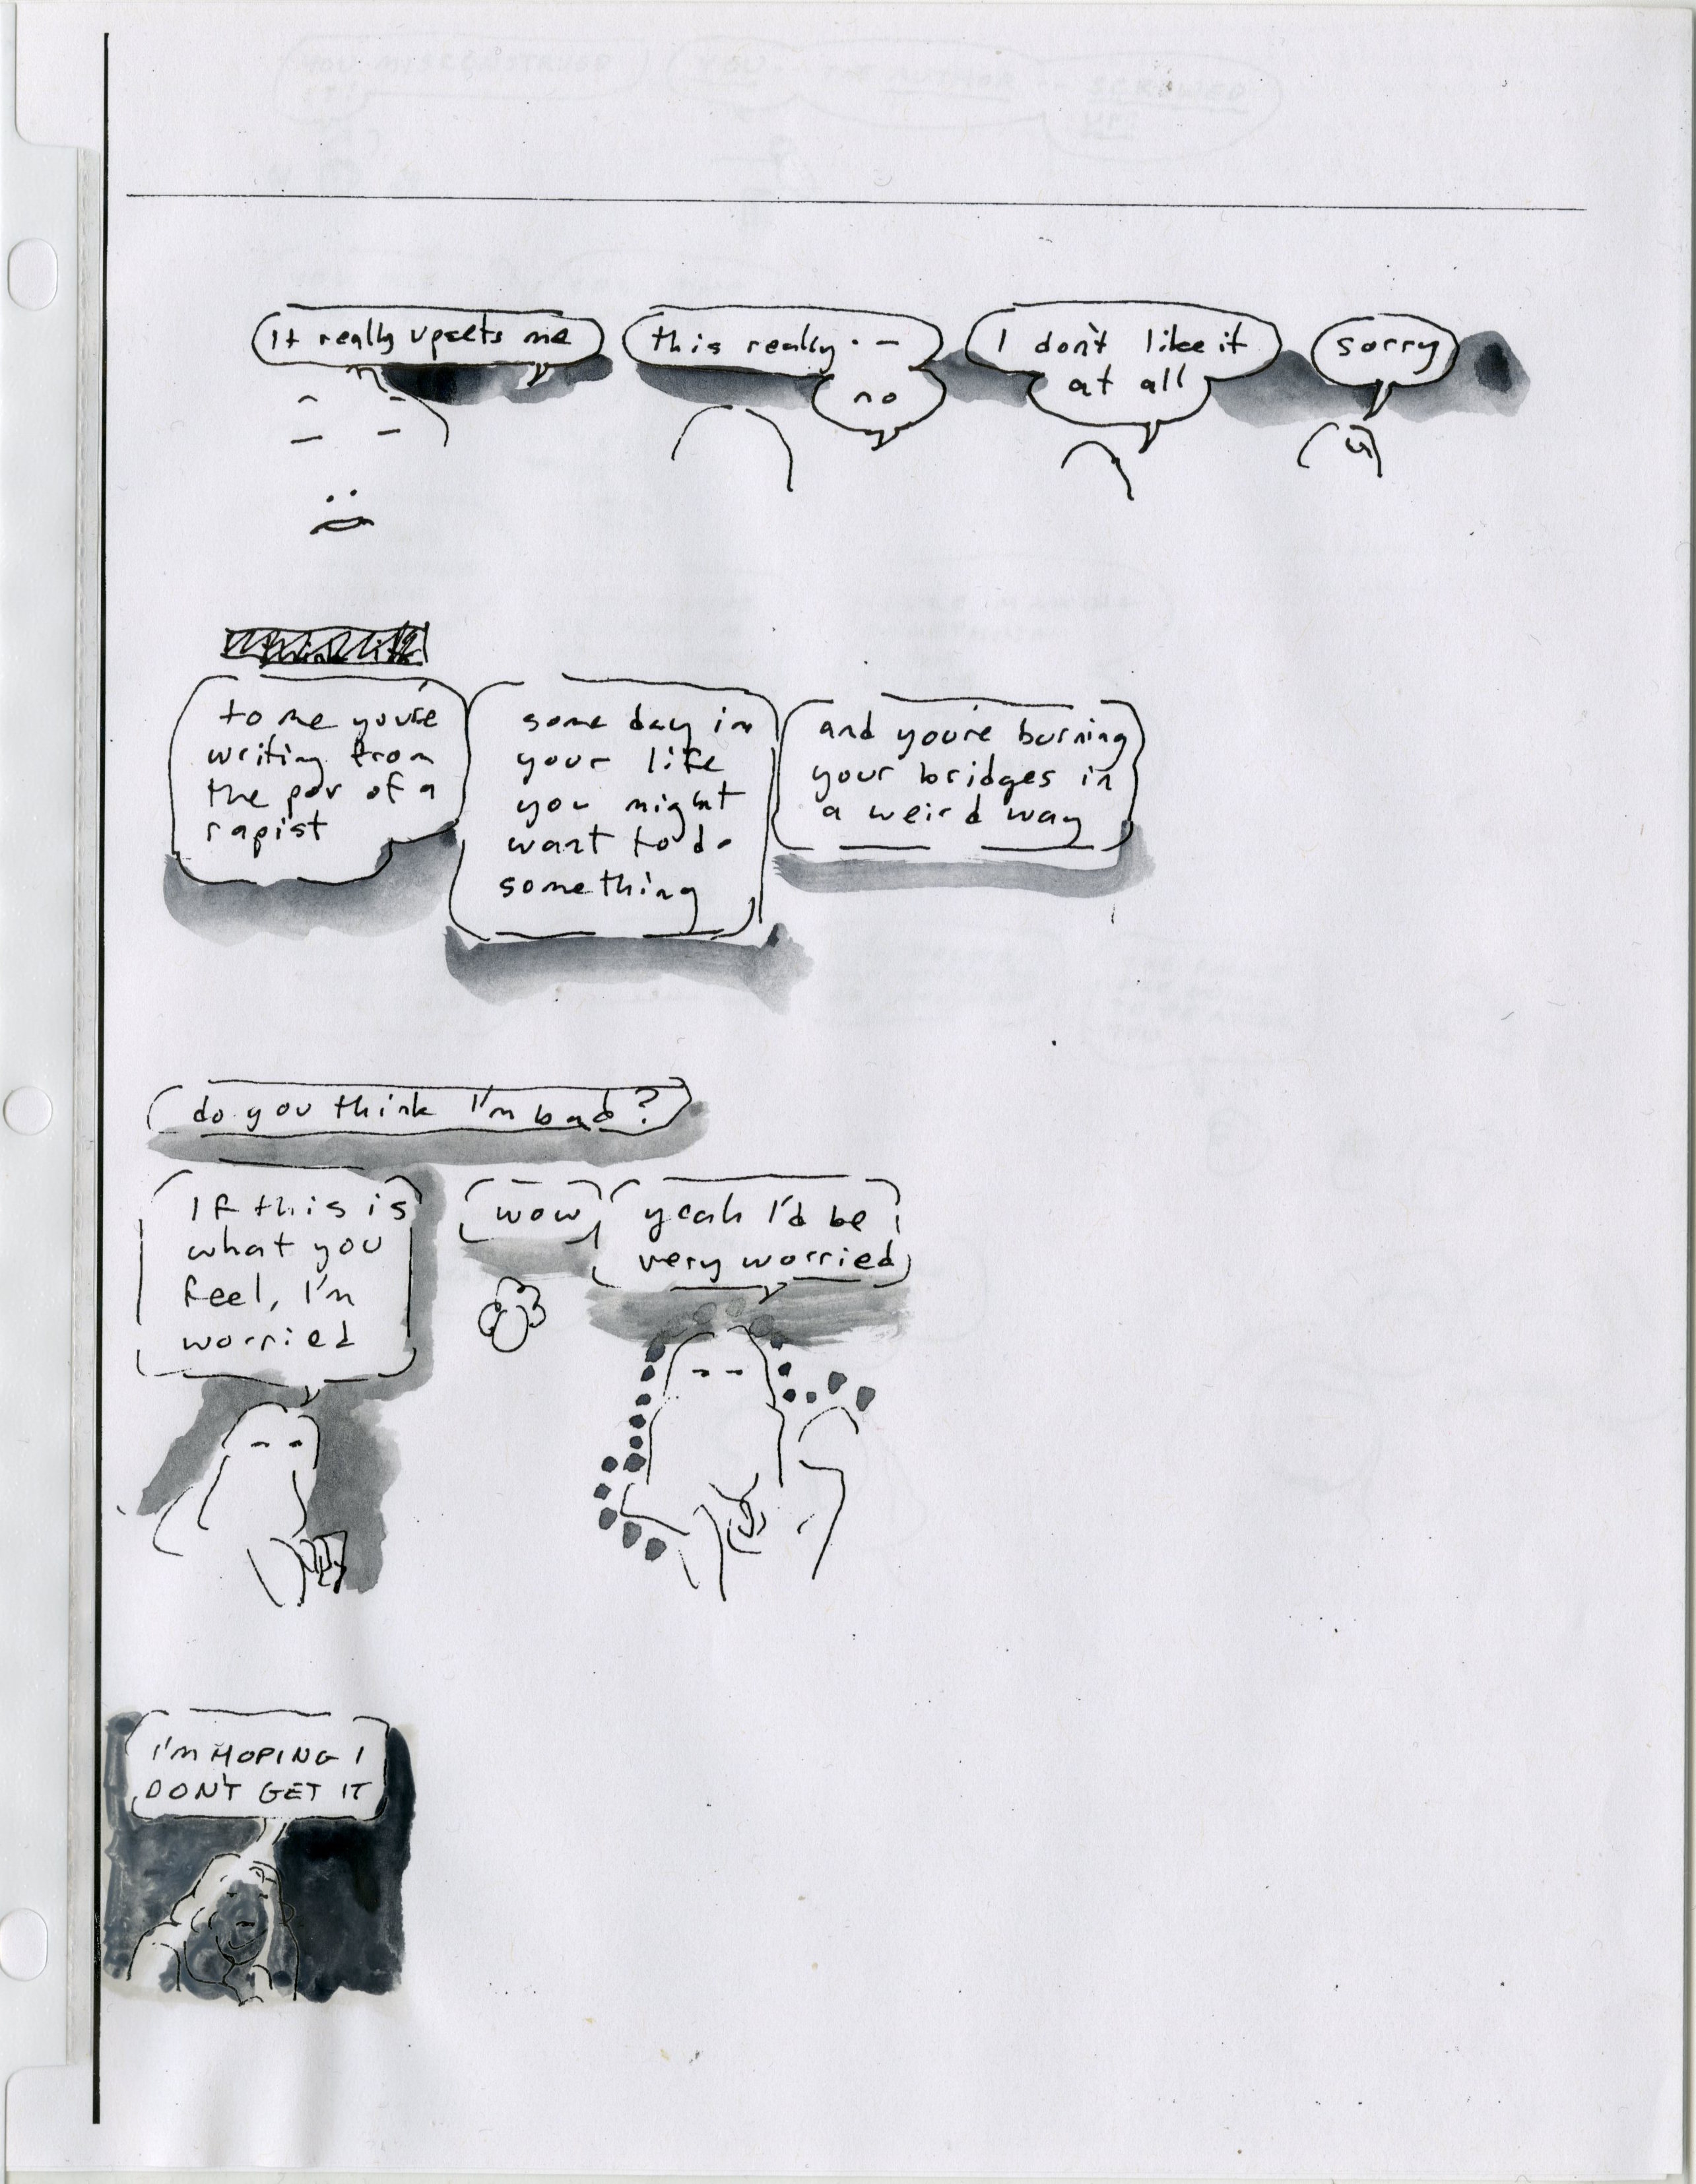 It really upsets me
this really --
no
I don't like it
at all
sorry
to me you're
writing from
the pov of a
rapist
some day in
your life
you might
want to do
something
and you're burning
your bridges in
a weird way
do you think I'm bad?
If this is
what you
feel, I'm
worried
wow
yeah I'd be
very worried
I'M HOPING I
DON'T GET IT